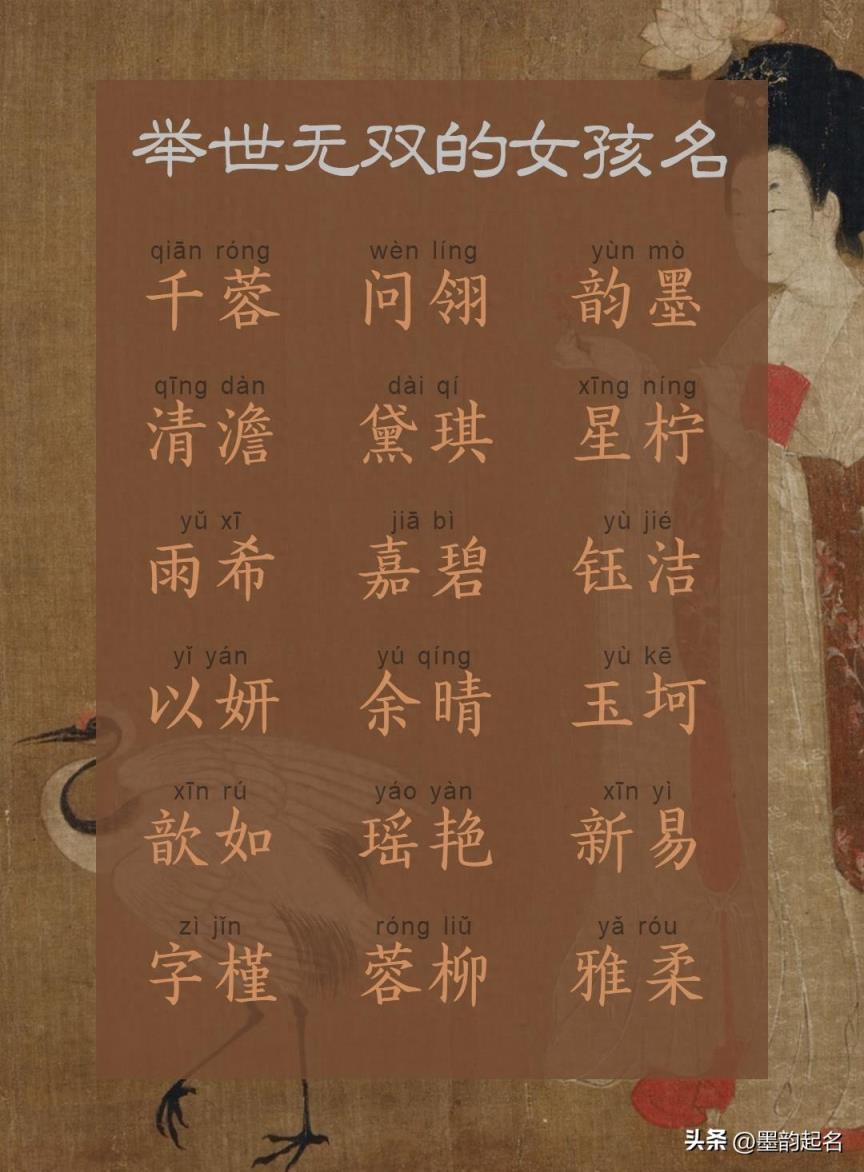 举世无双的女孩名
qiān róng wèn líng yùn mò
千蓉 问翎 韵墨
qīng dàn dài qí xīng níng
清澹 黛琪 星柠
yǔ xī jiā bì yù jié
雨希 嘉碧 钰洁
yǐ yán yú qíng yù kē
以妍 余晴 玉坷
xīn rú yáo yàn xīn yì
歆如 瑶艳 新易
zì jǐn róng liǔ yǎ róu
字槿 蓉柳 雅柔
头条 @墨韵起名